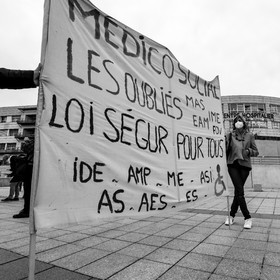 MÉDICO SOCIAL
LES OUBLIÉS MAS IME
EAM FOV
LOI SÉGUR POUR TOUS
IDE - AMP - ME - ASI
AS - AES - ES -
CENTRE HOSPITALIER